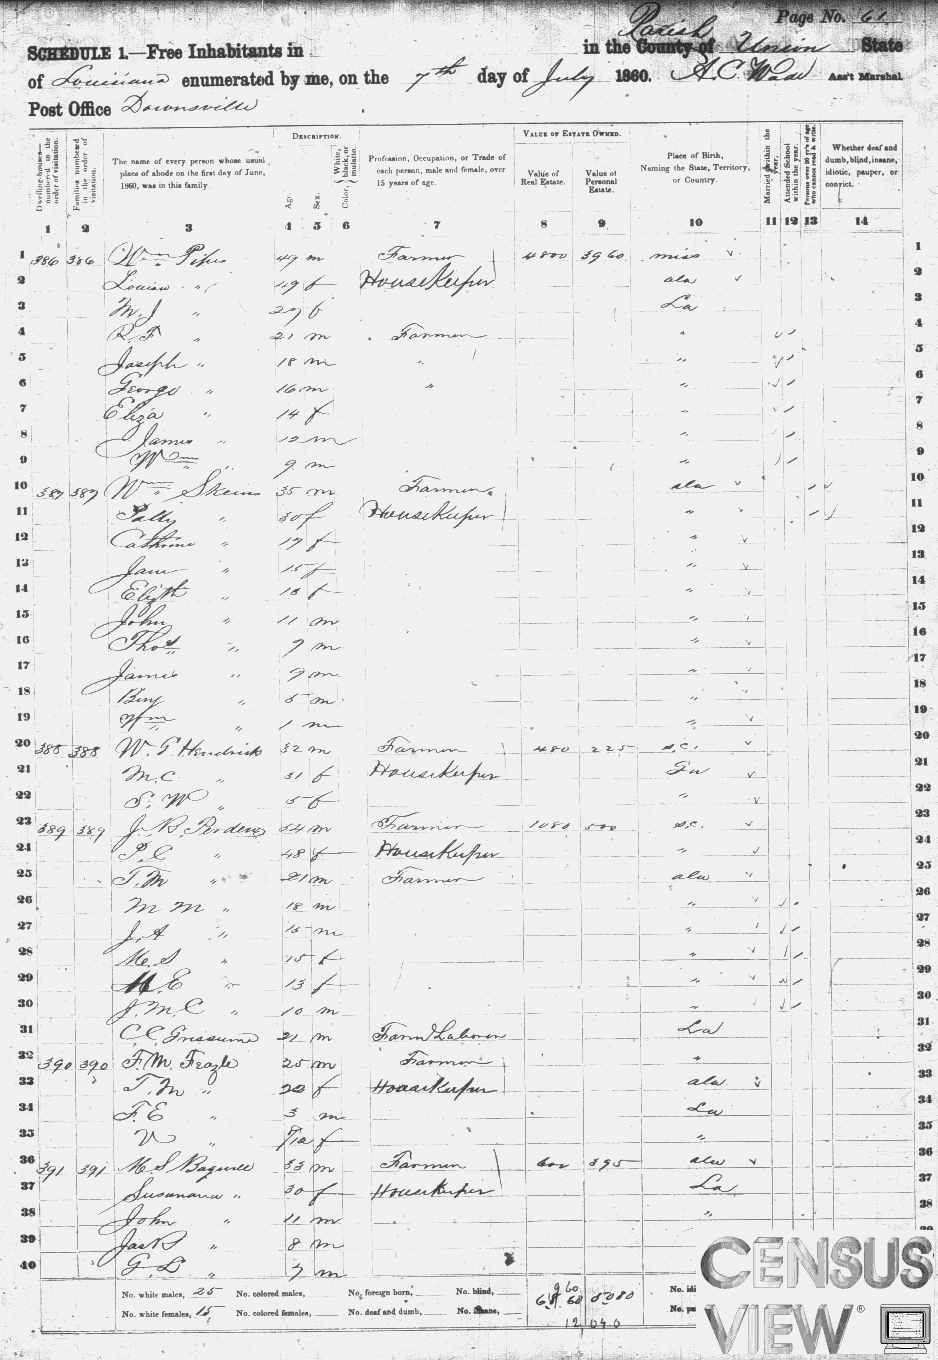 Page No. 61
SCHEDULE 1.—Free Inhabitants in in the County of Parish Union State
of Louisiana enumerated by me, on the 7th day of July 1860. A.C. Wade Ass't Marshal.
Post Office Downsville
Dwelling-houses—numbered in the order of visitation.
Families numbered in the order of visitation.
The name of every person whose usual place of abode on the first day of June, 1860, was in this family.
DESCRIPTION.
Age.
Sex.
Color, White, black, or mulatto.
Profession, Occupation, or Trade of each person, male and female, over 15 years of age.
VALUE OF ESTATE OWNED.
Value of Real Estate.
Value of Personal Estate.
Place of Birth, Naming the State, Territory, or Country.
Married within the year.
Attended School within the year.
Persons over 20 y'rs of age who cannot read & write.
Whether deaf and dumb, blind, insane, idiotic, pauper, or convict.
1 2 3 4 5 6 7 8 9 10 11 12 13 14
1 386 386 Wm Pipes 49 m Farmer 4800 3960 miss 1
2 Louisa " 49 f HouseKeeper ala 2
3 M. J " f La 3
4 R. F " 21 m Farmer " 4
5 Joseph " 18 m " " 5
6 George " 16 m " " 6
7 Eliza " 14 f " 7
8 James " 12 m " 8
9 Wm " 9 m " 9
10 387 387 Wm 35 m Farmer ala 10
11 " 30 f HouseKeeper " 11
12 " 17 f " 12
13 Jane " 15 f " 13
14 Elizth " f " 14
15 John " 11 m " 15
16 Thos " 9 m " 16
17 James " 7 m " 17
18 " 5 m " 18
19 Wm " 1 m " 19
20 388 388 Hendrick 32 m Farmer 480 225 S.C. 20
21 M.C. " 31 f HouseKeeper Ga 21
22 S. W " 5 f " 22
23 389 389 J. B. 54 m Farmer 1080 500 S.C. 23
24 P. C " 48 f HouseKeeper " 24
25 T. M " 21 m Farmer ala 25
26 M M " 18 m " 26
27 J. A " m " 27
28 M. S " 15 f " 28
29 M. E " 13 f " 29
30 J. M. C " 10 m " 30
31 C. C. Grissume 21 m Farm Laborer La 31
32 390 390 F. M. 25 m Farmer " 32
33 T. M " f HouseKeeper ala 33
34 F. E " 3 m La 34
35 " f " 35
36 391 391 M. S Bagwell 33 m Farmer 600 395 ala 36
37 Susanana " 30 f HouseKeeper La 37
38 John " 11 m " 38
39 " 8 m 39
40 G. L " 7 m
No. white males, 25 No. colored males, No. foreign born, No. blind, 8080
No. white females, 15 No. colored females, No. deaf and dumb, No. insane,
12,040
CENSUS
VIEW®